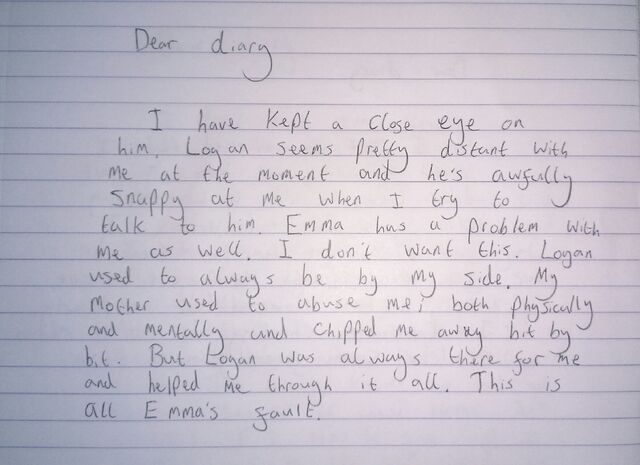 Dear diary
I have kept a close eye on
him. Logan seems pretty distant with
me at the moment and he's awfully
snappy at me when I try to
talk to him. Emma has a problem with
me as well. I don't want this. Logan
used to always be by my side. My
mother used to abuse me; both physically
and mentally and chipped me away bit by
bit. But Logan was always there for me
and helped me through it all. This is
all Emma's fault.